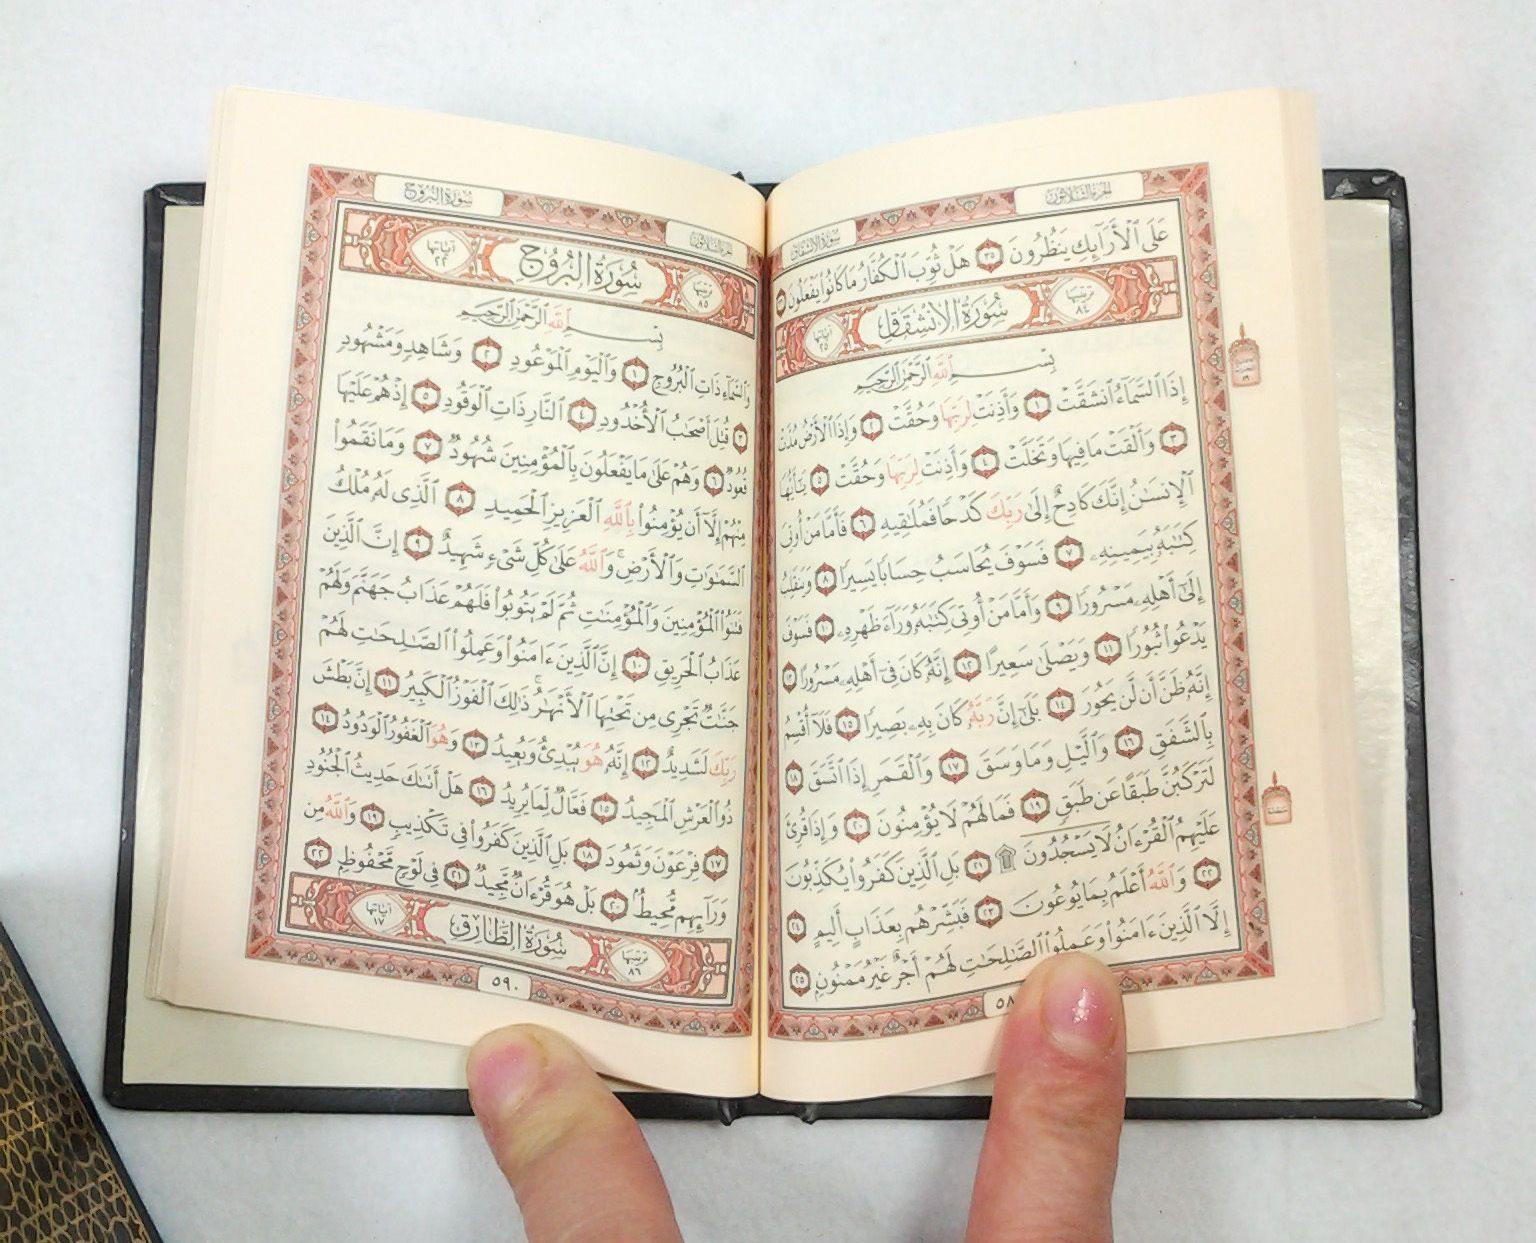 الجزء الثلاثون
سورة الانشقاق
عَلَى ٱلْأَرَآئِكِ يَنظُرُونَ ٣٥ هَلْ ثُوِّبَ ٱلْكُفَّارُ مَا كَانُوا۟ يَفْعَلُونَ ٣٦
ترتيبها ٨٤ سُورَةُ الِانْشِقَاقِ آياتها ٢٥
بِسْمِ ٱللَّهِ ٱلرَّحْمَٰنِ ٱلرَّحِيمِ
إِذَا ٱلسَّمَآءُ ٱنشَقَّتْ ١ وَأَذِنَتْ لِرَبِّهَا وَحُقَّتْ ٢ وَإِذَا ٱلْأَرْضُ مُدَّتْ
٣ وَأَلْقَتْ مَا فِيهَا وَتَخَلَّتْ ٤ وَأَذِنَتْ لِرَبِّهَا وَحُقَّتْ ٥ يَٰٓأَيُّهَا
ٱلْإِنسَٰنُ إِنَّكَ كَادِحٌ إِلَىٰ رَبِّكَ كَدْحًا فَمُلَٰقِيهِ ٦ فَأَمَّا مَنْ أُوتِىَ
كِتَٰبَهُۥ بِيَمِينِهِۦ ٧ فَسَوْفَ يُحَاسَبُ حِسَابًا يَسِيرًا ٨ وَيَنقَلِبُ
إِلَىٰٓ أَهْلِهِۦ مَسْرُورًا ٩ وَأَمَّا مَنْ أُوتِىَ كِتَٰبَهُۥ وَرَآءَ ظَهْرِهِۦ ١٠ فَسَوْفَ
يَدْعُوا۟ ثُبُورًا ١١ وَيَصْلَىٰ سَعِيرًا ١٢ إِنَّهُۥ كَانَ فِىٓ أَهْلِهِۦ مَسْرُورًا ١٣
إِنَّهُۥ ظَنَّ أَن لَّن يَحُورَ ١٤ بَلَىٰٓ إِنَّ رَبَّهُۥ كَانَ بِهِۦ بَصِيرًا ١٥ فَلَآ أُقْسِمُ
بِٱلشَّفَقِ ١٦ وَٱلَّيْلِ وَمَا وَسَقَ ١٧ وَٱلْقَمَرِ إِذَا ٱتَّسَقَ ١٨
لَتَرْكَبُنَّ طَبَقًا عَن طَبَقٍ ١٩ فَمَا لَهُمْ لَا يُؤْمِنُونَ ٢٠ وَإِذَا قُرِئَ
عَلَيْهِمُ ٱلْقُرْءَانُ لَا يَسْجُدُونَ ۩ ٢١ بَلِ ٱلَّذِينَ كَفَرُوا۟ يُكَذِّبُونَ
٢٢ وَٱللَّهُ أَعْلَمُ بِمَا يُوعُونَ ٢٣ فَبَشِّرْهُم بِعَذَابٍ أَلِيمٍ ٢٤
إِلَّا ٱلَّذِينَ ءَامَنُوا۟ وَعَمِلُوا۟ ٱلصَّٰلِحَٰتِ لَهُمْ أَجْرٌ غَيْرُ مَمْنُونٍۭ ٢٥
٥٨
الجزء الثلاثون
سورة البروج
ترتيبها ٨٥ سُورَةُ الْبُرُوجِ آياتها ٢٢
بِسْمِ ٱللَّهِ ٱلرَّحْمَٰنِ ٱلرَّحِيمِ
وَٱلسَّمَآءِ ذَاتِ ٱلْبُرُوجِ ١ وَٱلْيَوْمِ ٱلْمَوْعُودِ ٢ وَشَاهِدٍ وَمَشْهُودٍ
٣ قُتِلَ أَصْحَٰبُ ٱلْأُخْدُودِ ٤ ٱلنَّارِ ذَاتِ ٱلْوَقُودِ ٥ إِذْ هُمْ عَلَيْهَا
قُعُودٌ ٦ وَهُمْ عَلَىٰ مَا يَفْعَلُونَ بِٱلْمُؤْمِنِينَ شُهُودٌ ٧ وَمَا نَقَمُوا۟
مِنْهُمْ إِلَّآ أَن يُؤْمِنُوا۟ بِٱللَّهِ ٱلْعَزِيزِ ٱلْحَمِيدِ ٨ ٱلَّذِى لَهُۥ مُلْكُ
ٱلسَّمَٰوَٰتِ وَٱلْأَرْضِ ۚ وَٱللَّهُ عَلَىٰ كُلِّ شَىْءٍ شَهِيدٌ ٩ إِنَّ ٱلَّذِينَ
فَتَنُوا۟ ٱلْمُؤْمِنِينَ وَٱلْمُؤْمِنَٰتِ ثُمَّ لَمْ يَتُوبُوا۟ فَلَهُمْ عَذَابُ جَهَنَّمَ وَلَهُمْ
عَذَابُ ٱلْحَرِيقِ ١٠ إِنَّ ٱلَّذِينَ ءَامَنُوا۟ وَعَمِلُوا۟ ٱلصَّٰلِحَٰتِ لَهُمْ
جَنَّٰتٌ تَجْرِى مِن تَحْتِهَا ٱلْأَنْهَٰرُ ۚ ذَٰلِكَ ٱلْفَوْزُ ٱلْكَبِيرُ ١١ إِنَّ بَطْشَ
رَبِّكَ لَشَدِيدٌ ١٢ إِنَّهُۥ هُوَ يُبْدِئُ وَيُعِيدُ ١٣ وَهُوَ ٱلْغَفُورُ ٱلْوَدُودُ ١٤
ذُو ٱلْعَرْشِ ٱلْمَجِيدُ ١٥ فَعَّالٌ لِّمَا يُرِيدُ ١٦ هَلْ أَتَىٰكَ حَدِيثُ ٱلْجُنُودِ
١٧ فِرْعَوْنَ وَثَمُودَ ١٨ بَلِ ٱلَّذِينَ كَفَرُوا۟ فِى تَكْذِيبٍ ١٩ وَٱللَّهُ مِن
وَرَآئِهِم مُّحِيطٌۢ ٢٠ بَلْ هُوَ قُرْءَانٌ مَّجِيدٌ ٢١ فِى لَوْحٍ مَّحْفُوظٍۭ ٢٢
ترتيبها ٨٦ سُورَةُ الطَّارِقِ آياتها ١٧
٥٩٠